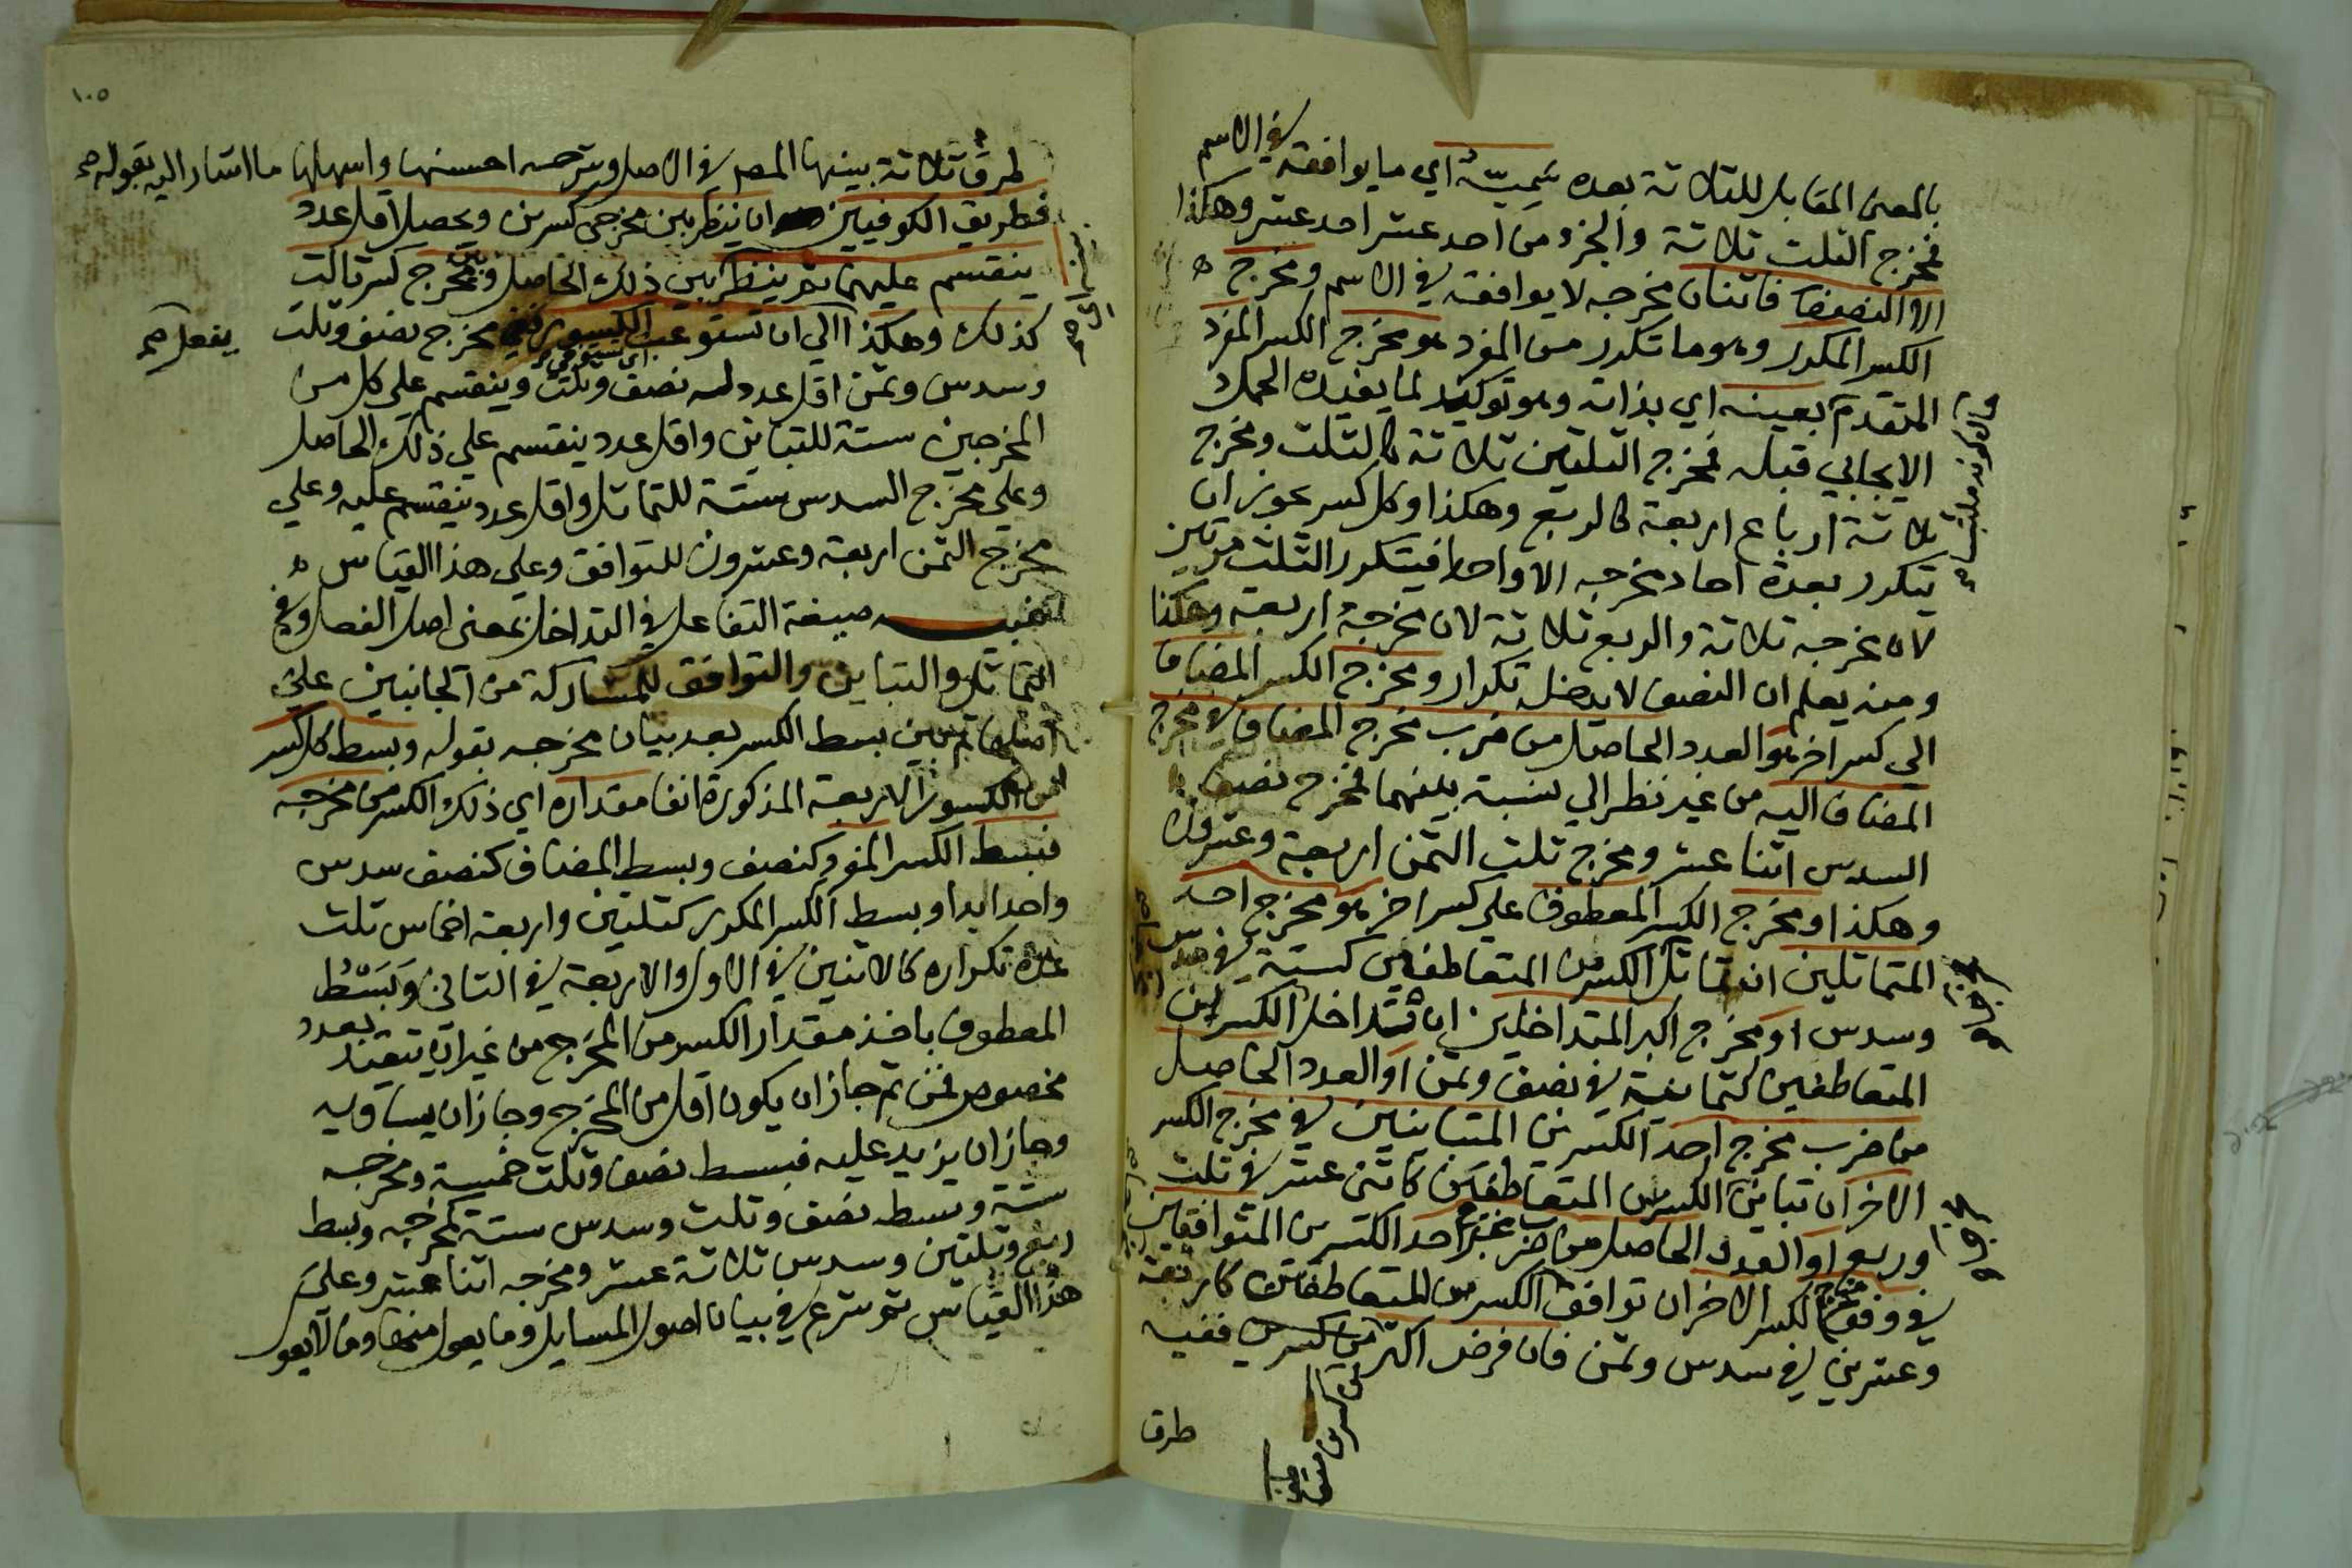 بالمعنى المقابل للثلاثة بعده سَمِيّه اي ما يوافقه في الاسم
فمخرج الثلث ثلاثة والجزء من احد عشر احد عشر وهكذا
الا النصف فاثنان مخرجه لا يوافقه في الاسم ومخرج
الكسر المكرر وهو ما تكرر من المفرد هو مخرج الكسر المفرد
المتقدم بعينه اي بذاته وهو توكيد لما يفيده الحمل
الايجابي قبله فمخرج الثلثين ثلاثة كالثلث ومخرج
ثلاثة ارباع اربعة كالربع وهكذا وكل كسر يجوز ان
يتكرر بعدة احاد مخرجه الا واحدا فيتكرر الثلث مرتين
لان مخرجه ثلاثة والربع ثلاثة لان مخرجه اربعة وهكذا
ومنه يعلم ان النصف لا يدخله تكرار ومخرج الكسر المضاف
الي كسر اخر هو العدد الحاصل من ضرب مخرج المضاف في مخرج
المضاف اليه من غير نظر الي نسبة بينهما فمخرج نصف
السدس اثنا عشر ومخرج ثلث الثمن اربعة وعشرون
وهكذا ومخرج الكسر المعطوف علي كسر اخر هو مخرج احد
المتماثلين ان تماثل الكسرين المتعاطفين كستة في سدس
وسدس او مخرج اكبر المتداخلين ان تتداخل الكسرين
المتعاطفين كثمانية في نصف وثمن او العدد الحاصل
من ضرب مخرج احد الكسرين المتباينين في مخرج الكسر
الاخر ان تباين الكسرين المتعاطفين كاثنى عشر في ثلث
وربع او العدد الحاصل من ضرب مخرج احد الكسرين المتوافقين
في وفق مخرج الكسر الاخر ان توافق الكسرين المتعاطفين كاربعة
وعشرين في سدس وثمن فان فرض اكثر من كسرين ففيه
طرق
١٠٥
طرق ثلاثة بينها المصر في الاصل وشرحه احسنها واسهلها ما اشار اليه بقوله
فطريق الكوفيين ان ينظر بين مخرجي كسرين ويحصل اقل عدد
ينقسم عليهما ثم ينظر بين ذلك الحاصل وبين مخرج كسر ثالث
يفعل صح
كذلك وهكذا الي ان تستوعب الكسور ففي مخرج نصف وثلث
اي تستوفي
وسدس وثمن اقل عدد له نصف وثلث وينقسم علي كل من
المخرجين ستة للتباين واقل عدد ينقسم علي ذلك الحاصل
وعلي مخرج السدس ستة للتماثل واقل عدد ينقسم عليه وعلي
مخرج الثمن اربعة وعشرون للتوافق وعلي هذا القياس
تنبيه صيغة التفاعل في التداخل بمعنى اصل الفعل وفي
التماثل والتباين والتوافق للمشاركة من الجانبين علي
اصلها ثم بين بسط الكسر بعد بيان مخرجه بقوله وبسط كل كسر
من الكسور الاربعة المذكورة انفا مقداره اي ذلك الكسر من مخرجه
فبسط الكسر المفرد كنصف وبسط المضاف كنصف سدس
واحد ابدا وبسط الكسر المكرر كثلثين واربعة اخماس ثلث
عدة تكراره كالاثنين في الاول والاربعة في الثاني وَبَسْطُ
المعطوف باخذ مقدار الكسر من المخرج من غير ان يتقيد بعدد
مخصوص فمن ثم جاز ان يكون اقل من المخرج وجاز ان يساويه
وجاز ان يزيد عليه فبسط نصف وثلث خمسة ومخرجه
ستة وبسط نصف وثلث وسدس ستة كمخرجه وبسط
ربع وثلثين وسدس ثلاثة عشر ومخرجه اثنا عشر وعلي
هذا القياس ثم شرع في بيان اصول المسايل وما يعول منها وما لا يعول